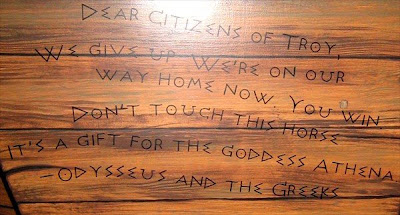 Dear Citizens of Troy,
We give up. We're on our
way home now. You win
Don't touch this horse
It's a gift for the goddess Athena
-Odysseus and the Greeks